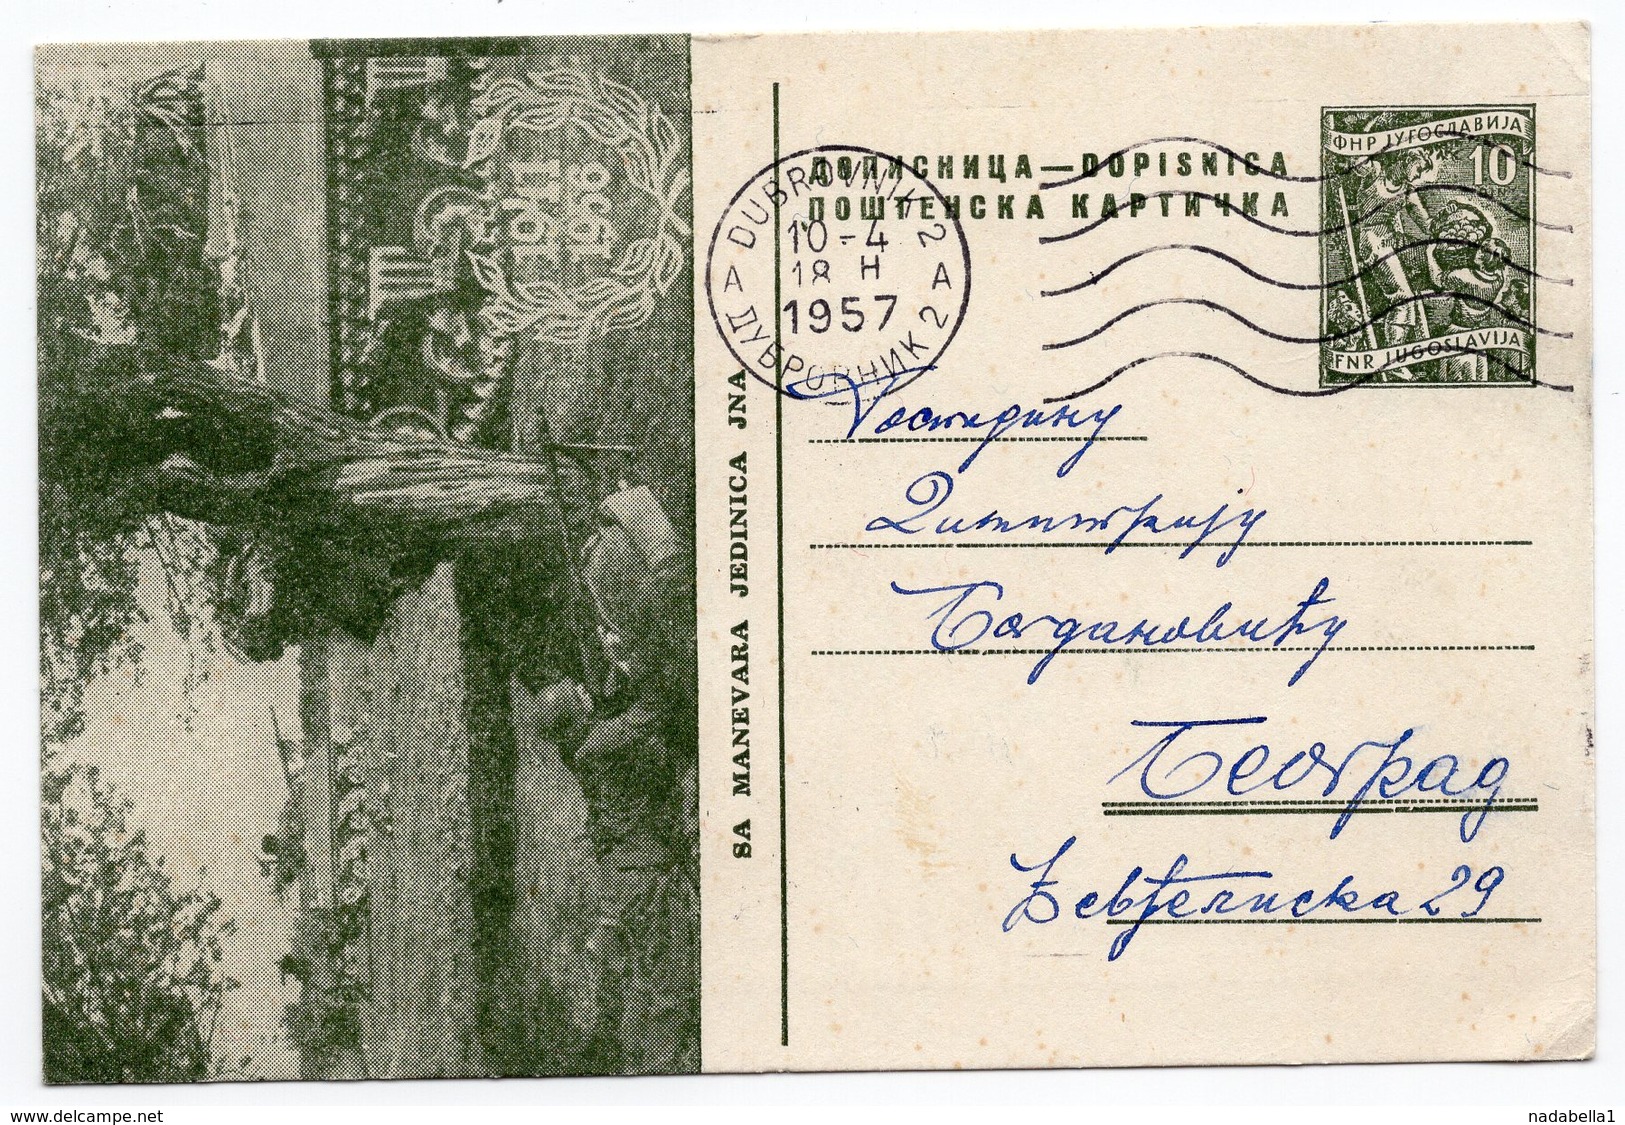 ДОПИСНИЦА — DOPISNICA
ПОШТЕНСКА КАРТИЧКА
ФНР ЈУГОСЛАВИЈА
10
DIN
FNR JUGOSLAVIJA
DUBROVNIK 2
10-4
18 H
1957
A A
ДУБРОВНИК 2
SA MANEVARA JEDINICA JNA
1941
1956
Господину
Димитрију
Богдановићу
Београд
Ђевђелиска 29
nadabella1